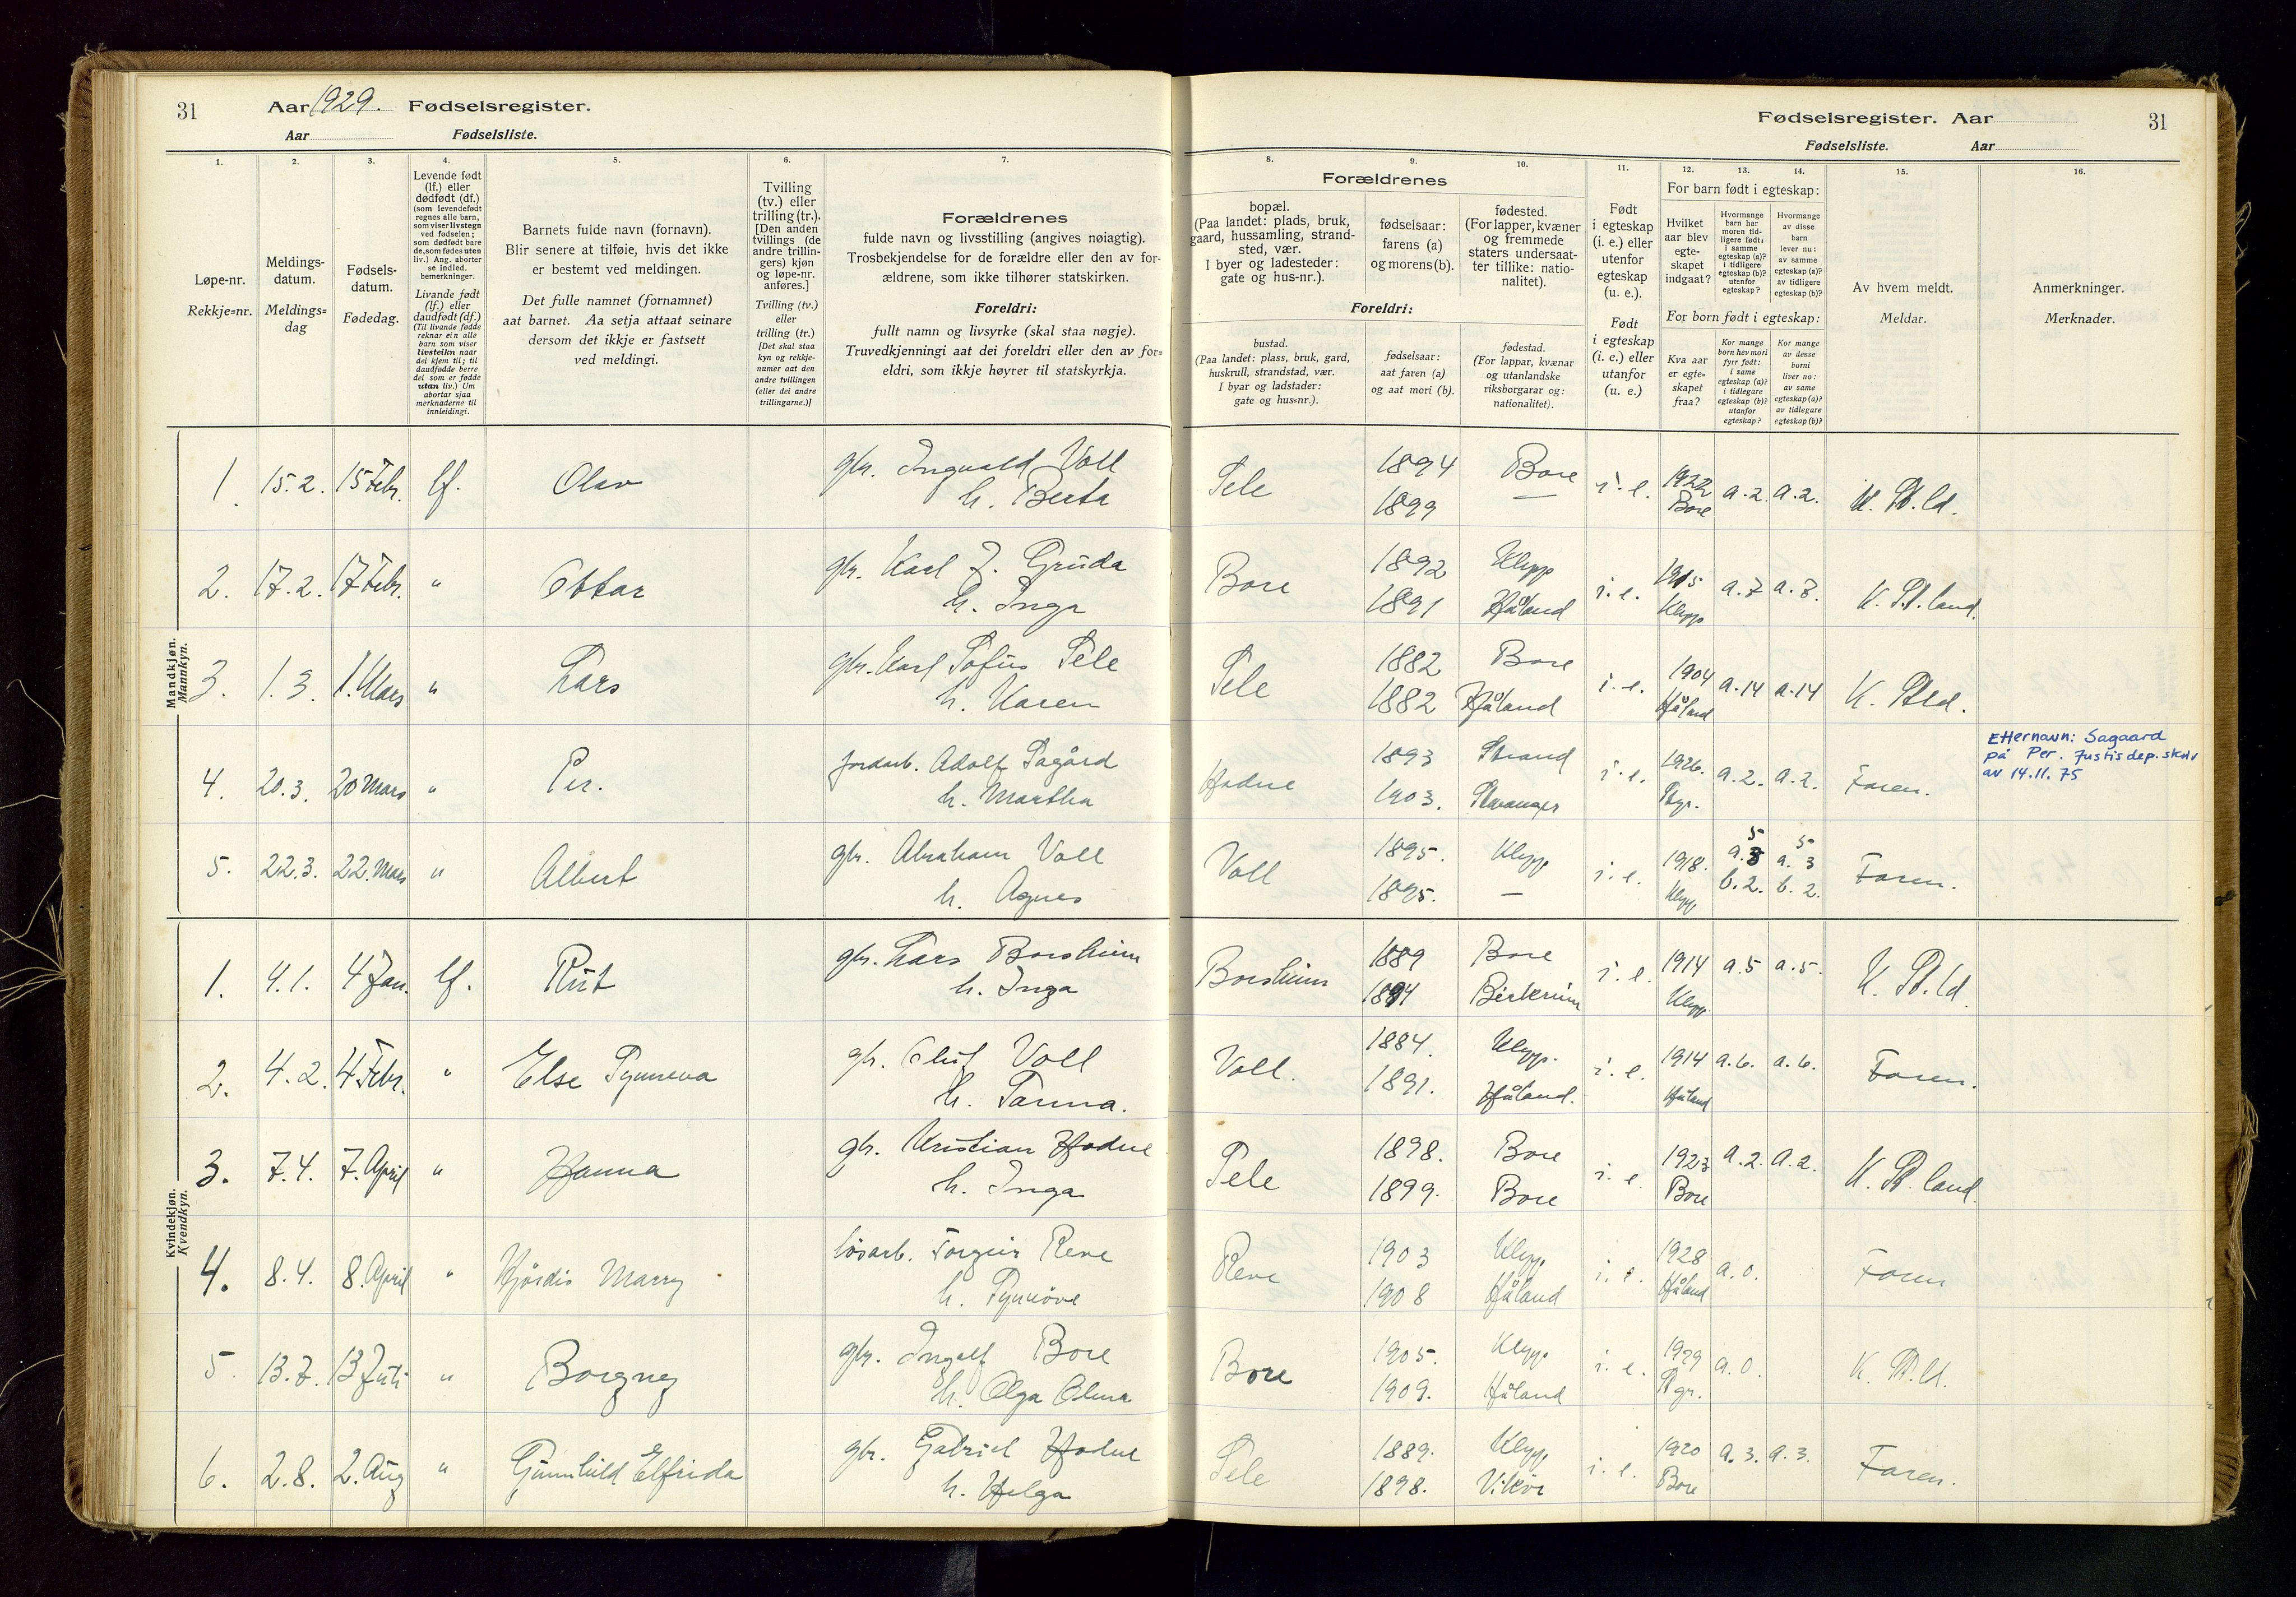 31 Aar 1929. Fødselsregister.
Aar Fødselsliste.
Fødselsregister. Aar 31
Fødselsliste. Aar
1. 2. 3. 4. 5. 6. 7. 8. 9. 10. 11. 12. 13. 14. 15. 16.
Løpe-nr.
Rekkje=nr.
Meldings-
datum.
Meldings=
dag
Fødsels-
datum.
Fødedag.
Levende født
(lf.) eller
dødfødt (df.)
(som levendefødt
regnes alle barn,
som viser livstegn
ved fødselen;
som dødfødt bare
de, som fødes uten
liv.) Ang. aborter
se indled.
bemerkninger.
Livande født
(lf.) eller
daudfødt (df.)
(Til livande fødde
reknar ein alle
barn som viser
livsteikn naar
dei kjem til; til
daudfødde berre
dei som er fødde
utan liv.) Um
abortar sjaa
merknaderne til
innleidingi.
Barnets fulde navn (fornavn).
Blir senere at tilføie, hvis det ikke
er bestemt ved meldingen.
Det fulle namnet (fornamnet)
aat barnet. Aa setja attaat seinare
dersom det ikkje er fastsett
ved meldingi.
Tvilling
(tv.) eller
trilling (tr.).
[Den anden
tvillings (de
andre trillin-
gers) kjøn
og løpe-nr.
anføres.]
Tvilling (tv.)
eller
trilling (tr.)
[Det skal staa
kyn og rekkje-
numer aat den
andre tvillingen
(eller dei andre
trillingarne.)]
Forældrenes
fulde navn og livsstilling (angives nøiagtig).
Trosbekjendelse for de forældre eller den av for-
ældrene, som ikke tilhører statskirken.
Foreldri:
fullt namn og livsyrke (skal staa nøgje).
Truvedkjenningi aat dei foreldri eller den av for=
eldri, som ikkje høyrer til statskyrkja.
Forældrenes
bopæl.
(Paa landet: plads, bruk,
gaard, hussamling, strand-
sted, vær.
I byer og ladesteder:
gate og hus-nr.).
fødselsaar:
farens (a)
og morens (b).
fødested.
(For lapper, kvæner
og fremmede
staters undersaat-
ter tillike: natio-
nalitet).
Foreldri:
bustad.
(Paa landet: plass, bruk, gard,
huskrull, strandstad, vær.
I byar og ladstader:
gate og hus=nr.).
fødselsaar:
aat faren (a)
og aat mori (b).
fødestad.
(For lappar, kvænar
og utanlandske
riksborgarar og:
nationalitet).
Født
i egteskap
(i. e.) eller
utenfor
egteskap
(u. e.).
Født
i egteskap
(i. e.) eller
utanfor
(u. e.)
For barn født i egteskap:
Hvilket
aar blev
egte-
skapet
indgaat?
Hvormange
barn har
moren tid-
ligere født:
i samme
egteskap (a)?
i tidligere
egteskap (b)?
utenfor
egteskap?
Hvormange
av disse
barn
lever nu:
av samme
egteskap (a)?
av tidligere
egteskap (b)?
For born født i egteskap:
Kva aar
er egte=
skapet
fraa?
Kor mange
born hev mori
fyrr født:
i same
egteskap (a)?
i tidlegare
egteskap (b)?
utanfor
egteskap?
Kor mange
av desse
borni
liver no:
av same
egteskap (a)?
av tidlegare
egteskap (b)?
Av hvem meldt.
Meldar.
Anmerkninger.
Merknader.
Mandkjøn.
Mannkyn.
1. 15.2. 15 Febr. lf. Olav gbr. Ingvald Voll Sele 1894 Bore i. e. 1922 a.2. a.2.
h. Berta 1899 — Bore
2. 17.2. 17 Febr. " Ottar gbr. Karl J. Gruda Bore 1892 Klepp i. e. 1915 a.7 a.7.
h. Inga 1891 Håland Klepp
3. 1.3. 1. Mars " Lars gbr. Karl Sofus Sele Sele 1882 Bore i. e. 1904 a.14 a.14
h. Karen 1882 Håland Håland
4. 20.3. 20 Mars " Per. jordarb. Adolf Sagård Hodne 1893 Strand i. e. 1926. a.2. a.2. Faren.
h. Martha 1903. Stavanger Stgr.
Etternavn: Sagaard
på Per. Justisdep. skriv
av 14.11.75
5. 22.3. 22. Mars " Albert gbr. Abraham Voll Voll 1895. Klepp i. e. 1918. a.3 5 a.3 5 Faren.
h. Agnes 1895. — Klepp b.2. b.2.
Kvindekjøn.
Kvendkyn.
1. 4.1. 4 Jan. lf. Rut gbr. Lars Borsheim Borsheim 1889 Bore i. e. 1914 a.5 a.5.
h. Inga 1894 Birkrim Klepp
2. 4.2. 4 Febr. " Else Synneva gbr. Oluf Voll Voll. 1884. Klepp. i. e. 1914 a.6. a.6. Faren.
h. Sanna. 1891. Håland. Håland
3. 7.4. 7. April " Hanna gbr. Kristian Hodne Sele 1898. Bore i. e. 1923 a.2. a.2.
h. Inga 1899. Bore Bore
4. 8.4. 8. April " Hjørdis Marry løsarb. Torgeir Reve Reve 1903 Klepp i. e. 1928 a.0. Faren
h. Synnøve 1908 Håland Håland
5. 13.7. 13 Juli " Borgny gbr. Ingolf Bore Bore 1905. Klepp i. e. 1929 a.0.
h. Olga Alma 1909. Håland Stgr.
6. 2.8. 2. Aug " Gunnhild Elfrida gbr. Gabriel Hodne Sele 1889. Klepp i. e. 1920 a.3. a.3. Faren.
h. Helga 1898. Vikør Bore